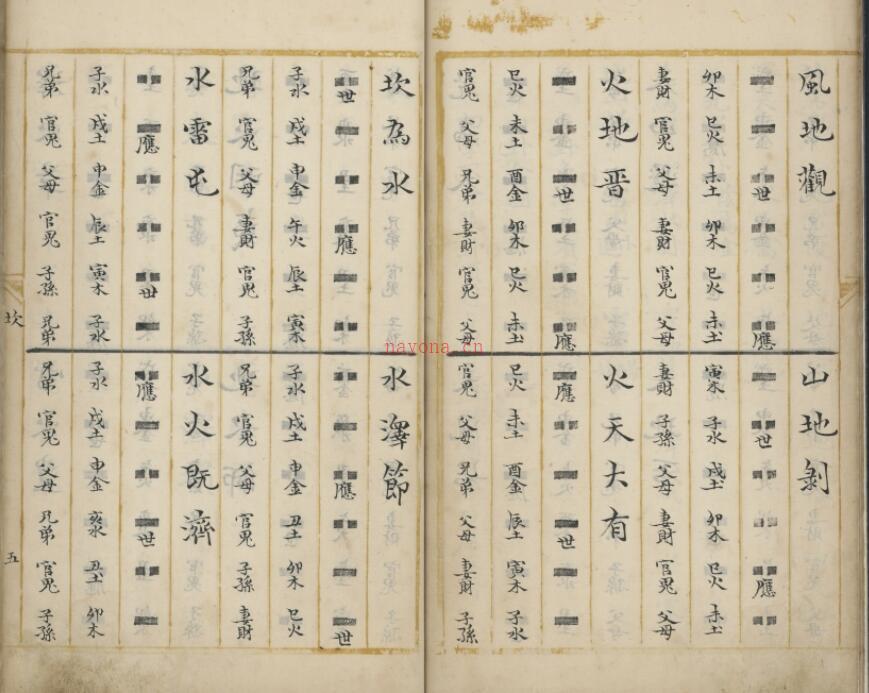 風地觀
世 應
卯木 巳火 未土 卯木 巳火 未土
妻財 官鬼 父母 妻財 官鬼 父母
火地晋
世 應
巳火 未土 酉金 卯木 巳火 未土
官鬼 父母 兄弟 妻財 官鬼 父母
山地剝
世 應
寅木 子水 戌土 卯木 巳火 未土
妻財 子孫 父母 妻財 官鬼 父母
火天大有
應 世
巳火 未土 酉金 辰土 寅木 子水
官鬼 父母 兄弟 父母 妻財 子孫
坎為水
世 應
子水 戌土 申金 午火 辰土 寅木
兄弟 官鬼 父母 妻財 官鬼 子孫
水雷屯
應 世
子水 戌土 申金 辰土 寅木 子水
兄弟 官鬼 父母 官鬼 子孫 兄弟
水澤節
應 世
子水 戌土 申金 丑土 卯木 巳火
兄弟 官鬼 父母 官鬼 子孫 妻財
水火既濟
應 世
子水 戌土 申金 亥水 丑土 卯木
兄弟 官鬼 父母 兄弟 官鬼 子孫
坎
五
nayona.cn